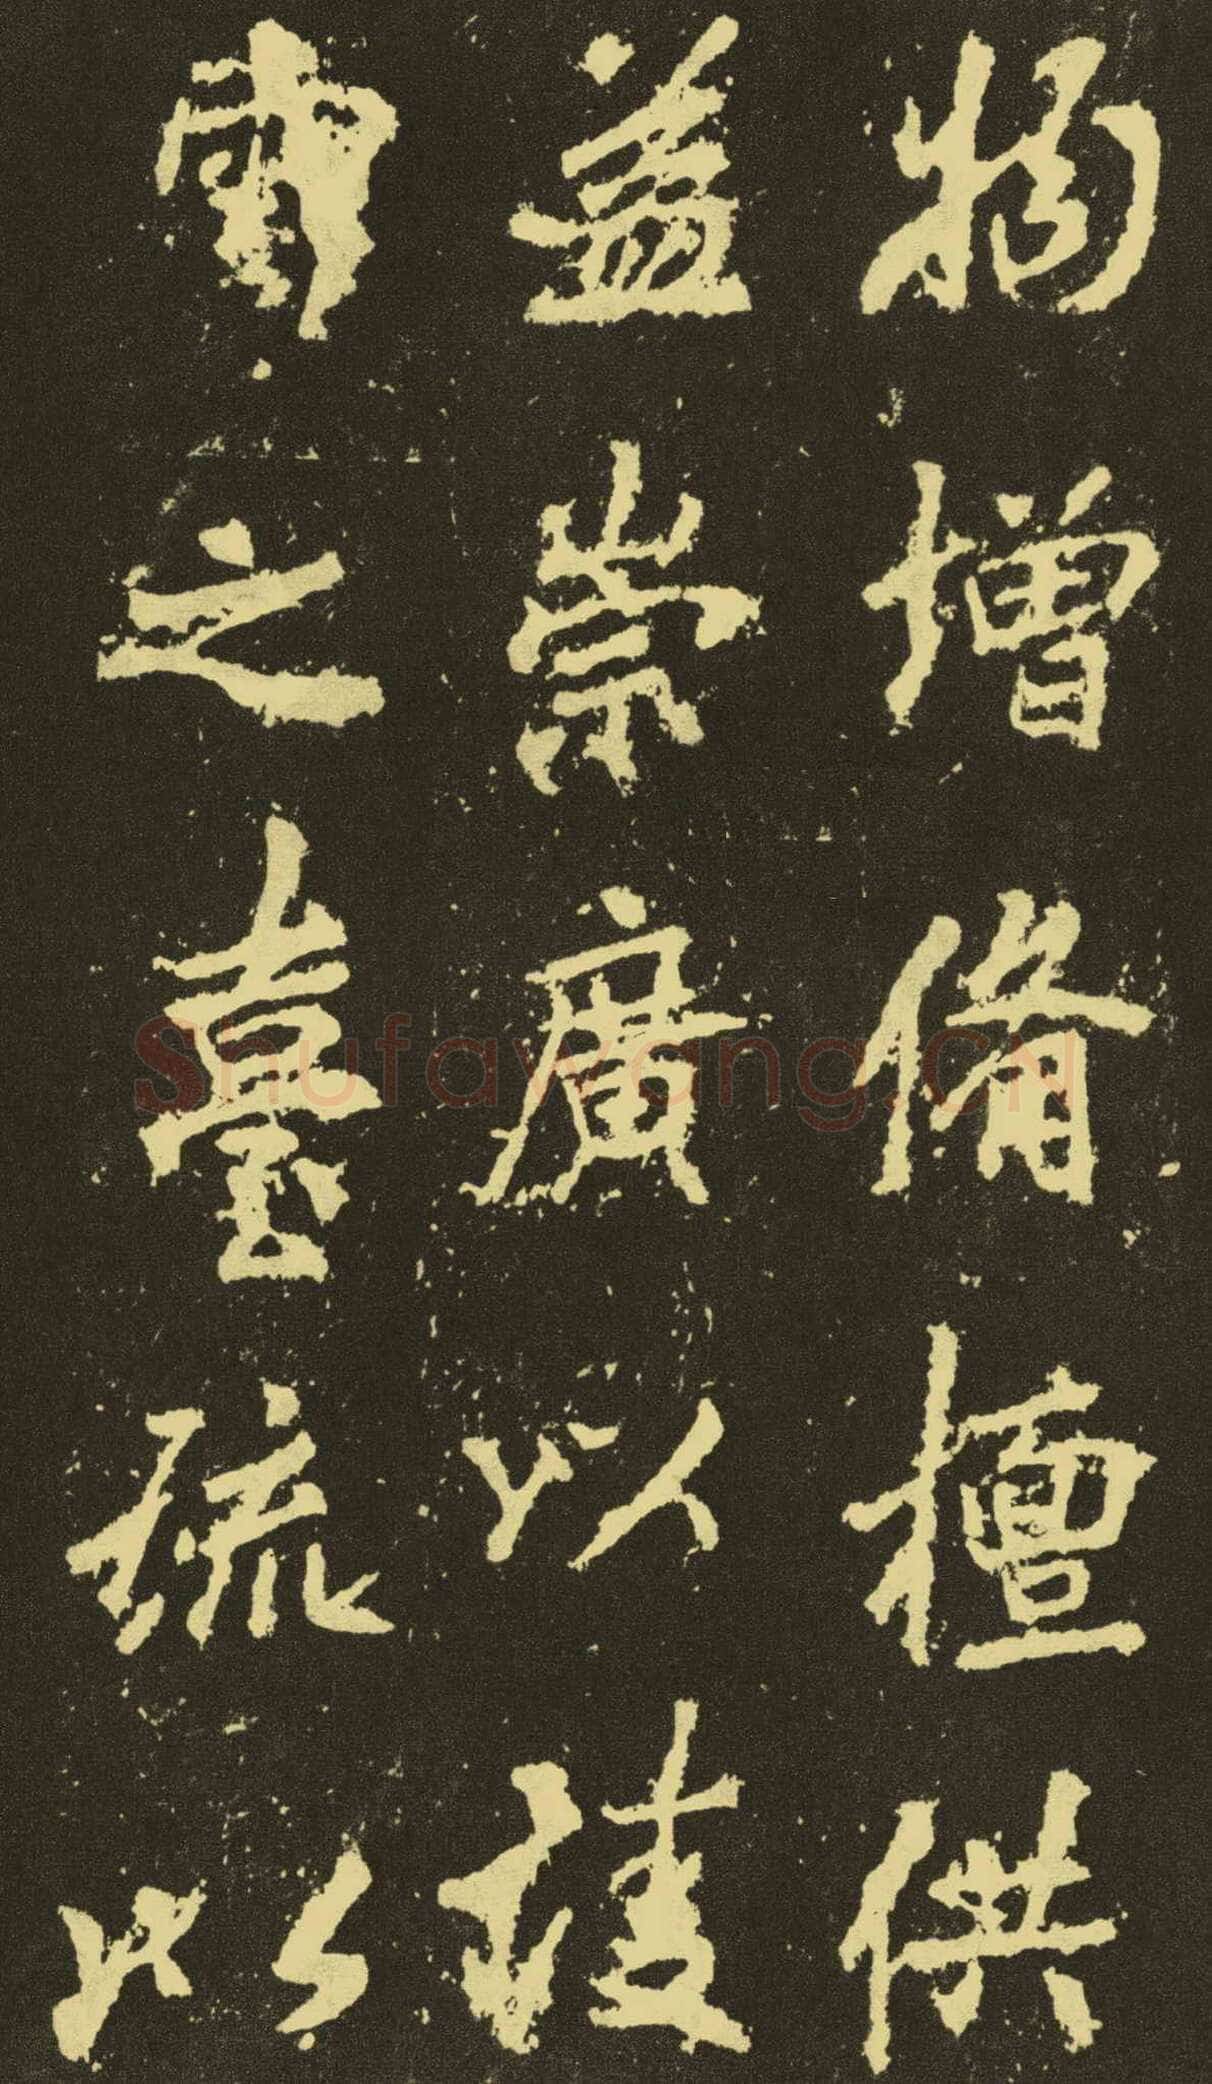 物增脩檀供
益崇廣以凌
雲之臺疏以
Shufawang.CN